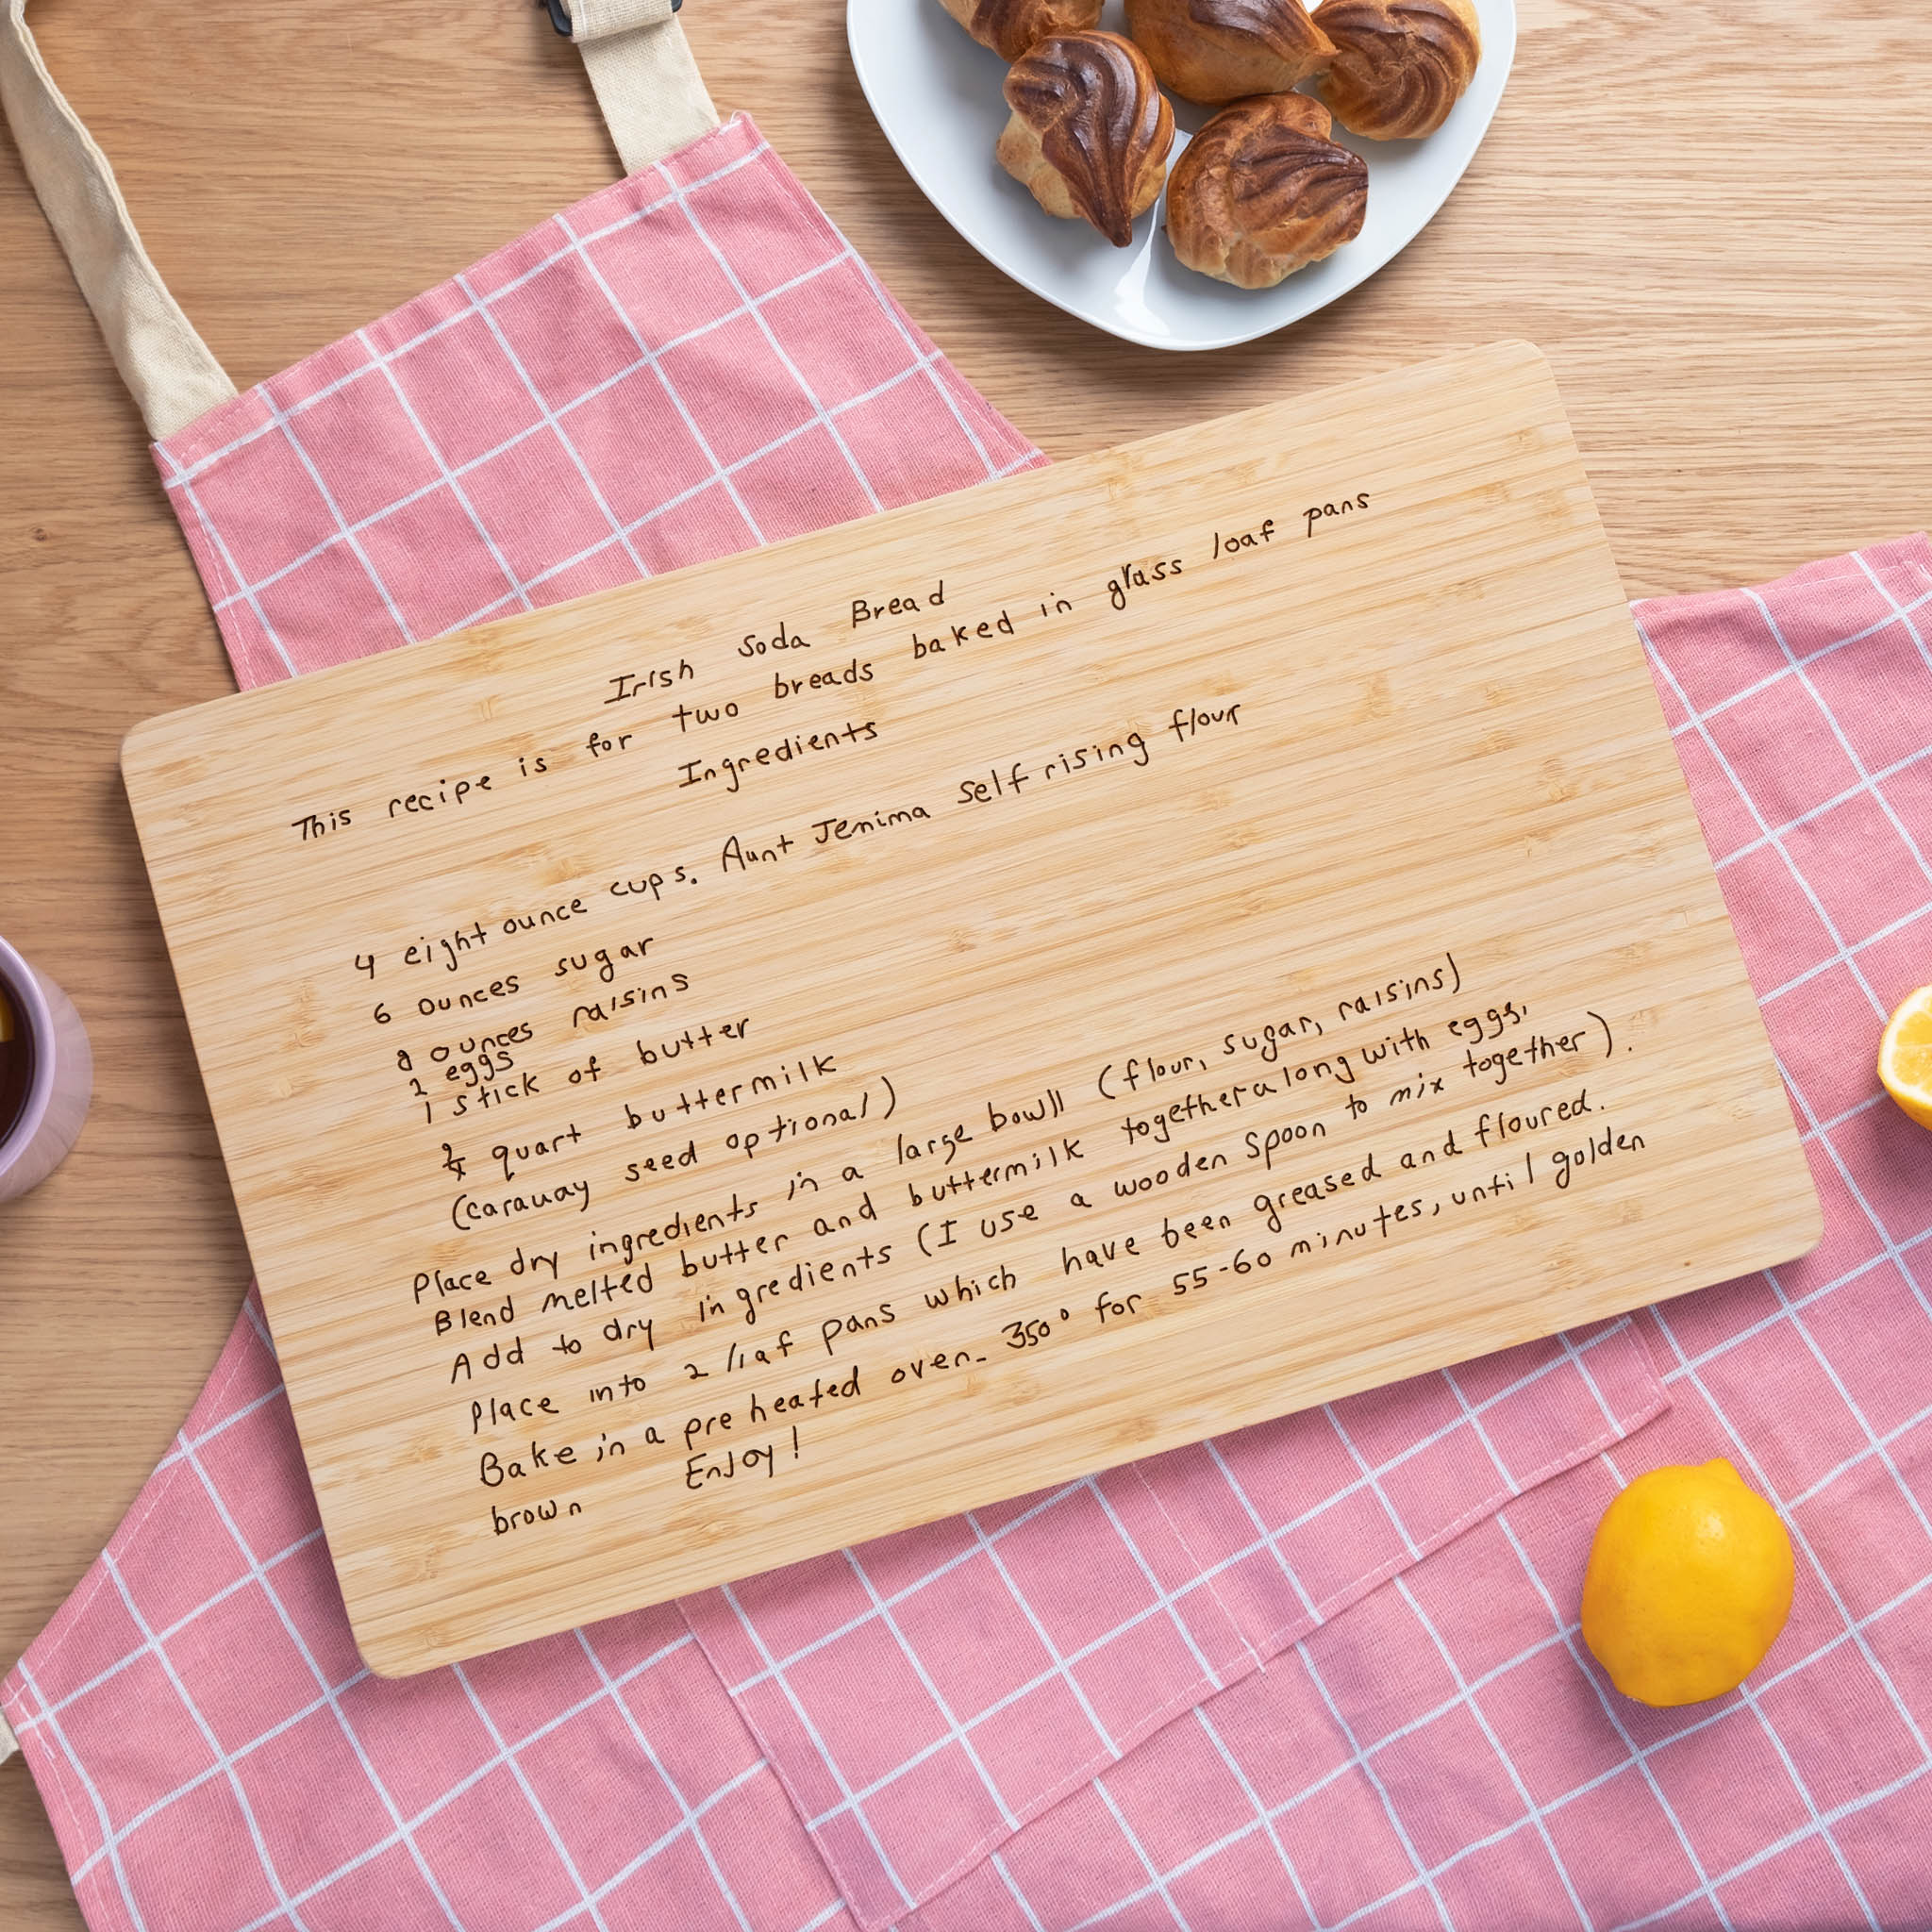 Irish Soda Bread
This recipe is for two breads baked in glass loaf pans
Ingredients
4 eight ounce cups. Aunt Jenima Self rising flour
6 ounces sugar
8 ounces raisins
2 eggs
1 stick of butter
quart buttermilk
(caraway seed optional)
Place dry ingredients in a large bowll (flour, sugar, raisins)
Blend melted butter and buttermilk together along with eggs,
Add to dry ingredients (I use a wooden spoon to mix together).
Place into 2 loaf pans which have been greased and floured.
Bake in a pre heated oven- 350° for 55-60 minutes, until golden
brown Enjoy!